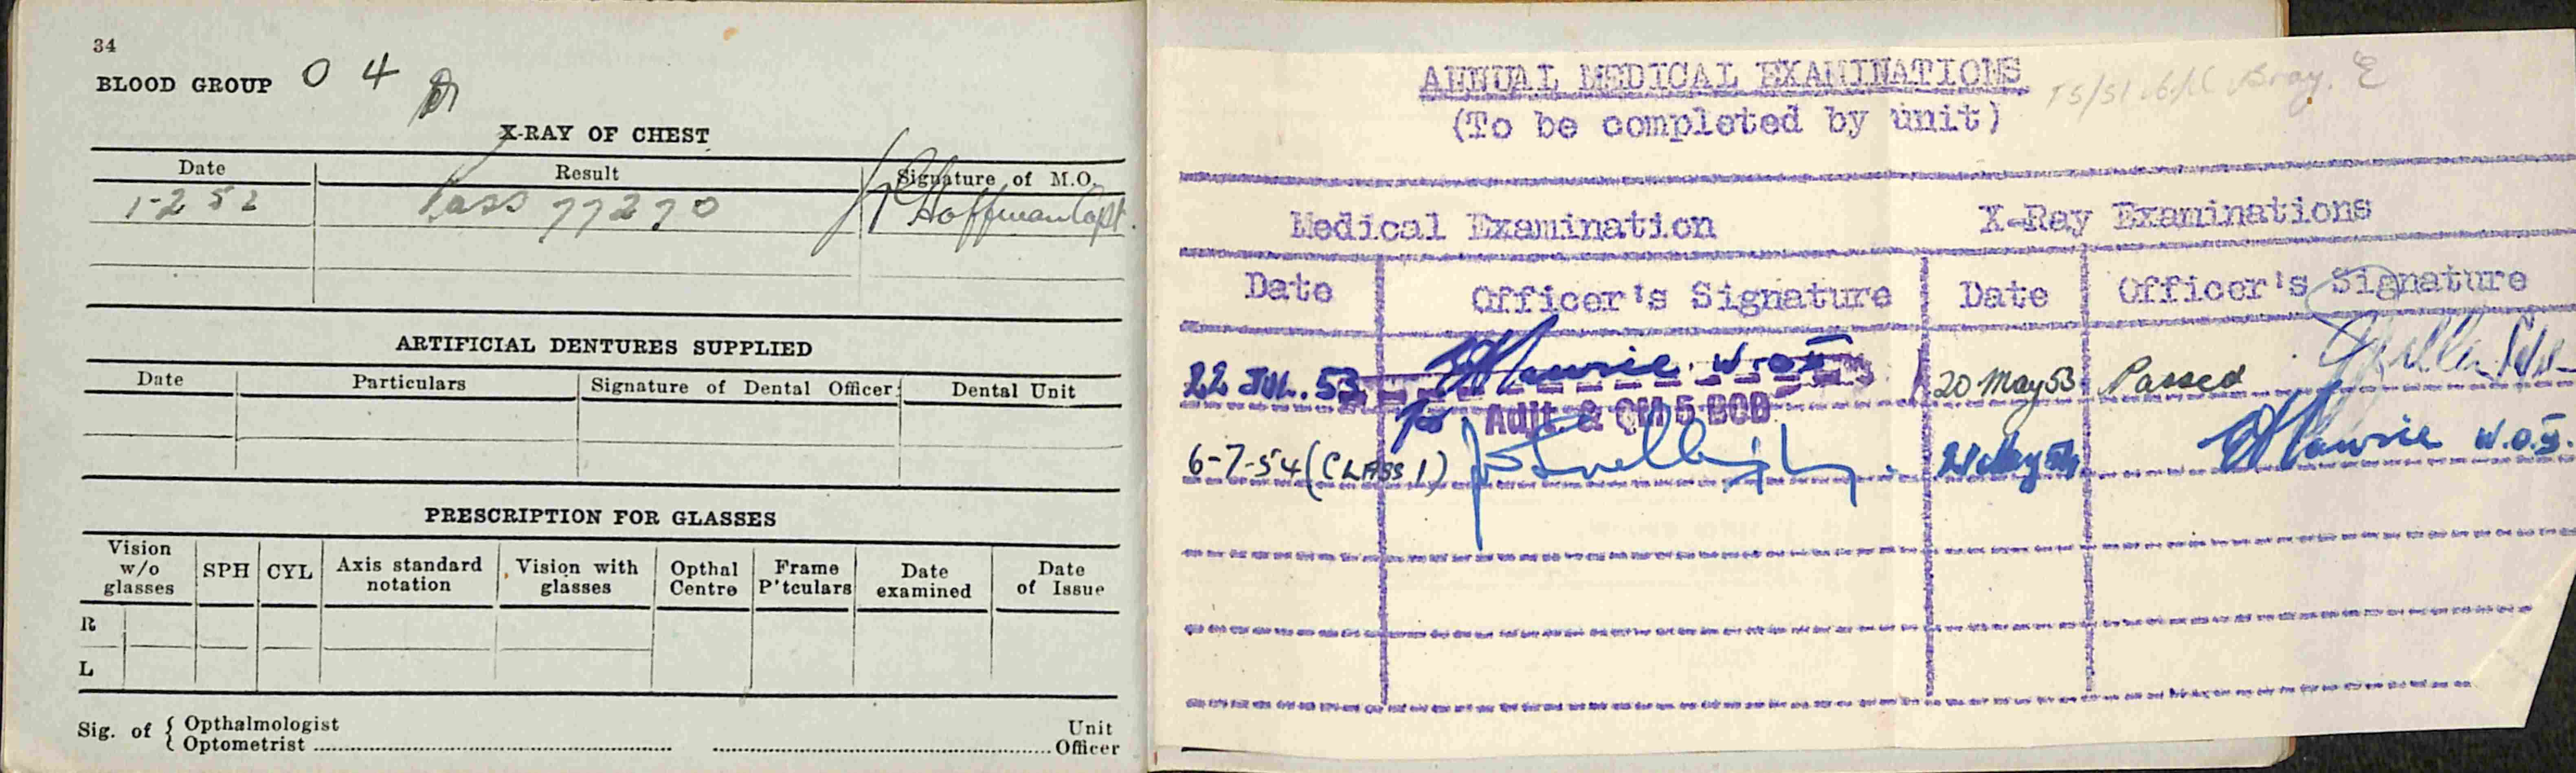 34
BLOOD GROUP O 4
X-RAY OF CHEST
Date Result Signature of M.O.
1-2 52 Pass 77270 Hoffman Capt.
ARTIFICIAL DENTURES SUPPLIED
Date Particulars Signature of Dental Officer Dental Unit
PRESCRIPTION FOR GLASSES
Vision w/o glasses SPH CYL Axis standard notation Vision with glasses Opthal Centre Frame P'tculars Date examined Date of Issue
R
L
Sig. of { Opthalmologist Unit
Optometrist Officer
ANNUAL MEDICAL EXAMINATIONS
Bray. E
(To be completed by unit)
Medical Examination X-Ray Examinations
Date Officer's Signature Date Officer's Signature
22 JUL. 53 W.O.II 20 May 53 Passed
for Adjt & QM 5 BOD
6-7-54 (CLASS 1) 21 May 54 W.O.II.